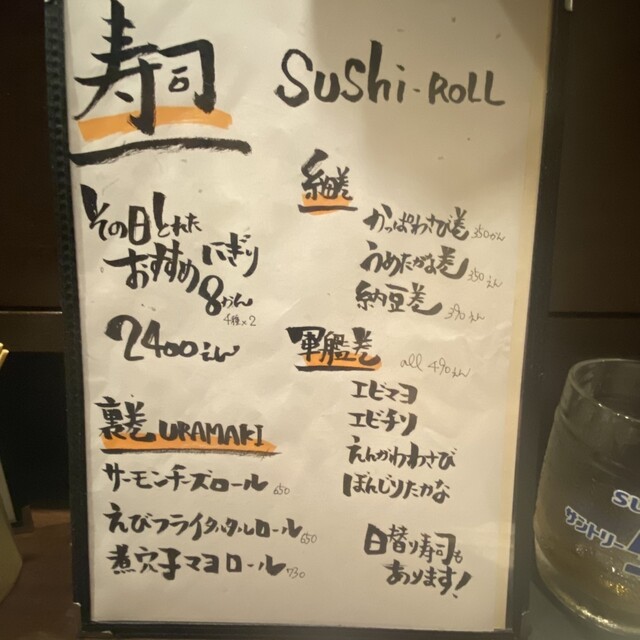 寿司
Sushi-ROLL
その日とれた
おすすめ にぎり
8かん
4種×2
2400えん
裏巻 URAMAKI
サーモンチーズロール 650
えびフライタルタルロール 650
煮穴子マヨロール 730
細巻
かっぱわさび巻 350えん
うめたかな巻 350えん
納豆巻 390えん
軍艦巻 all 490えん
エビマヨ
エビチリ
えんがわわさび
ぼんじりたかな
日替り寿司も
あります!
SU
サントリー